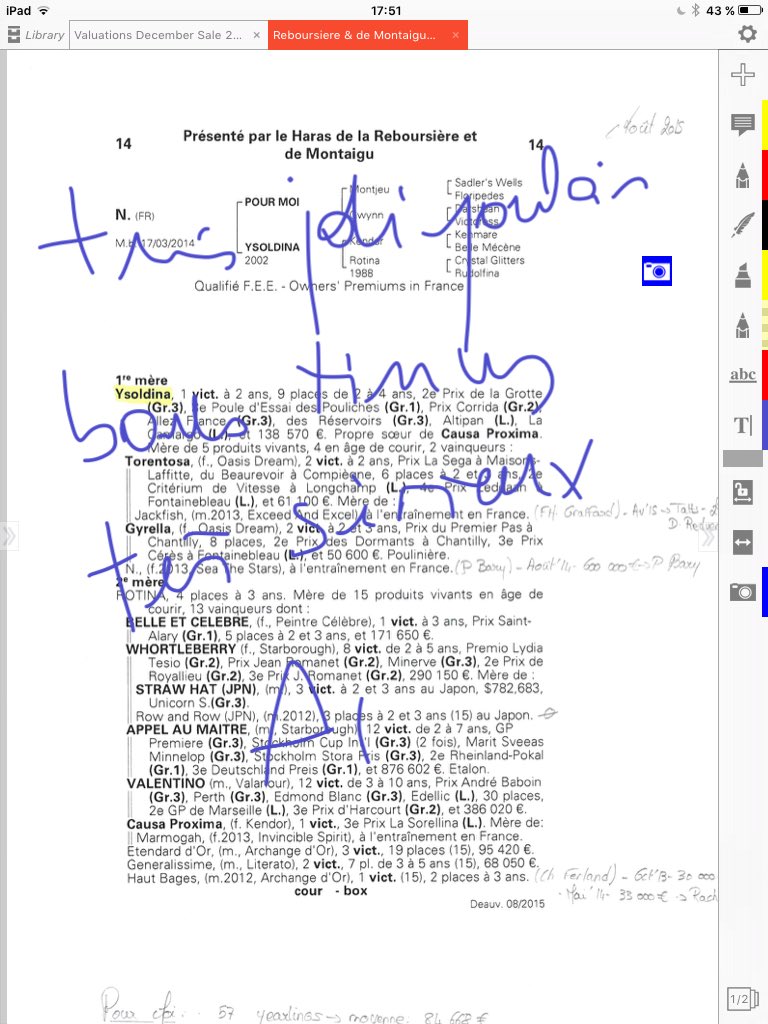 iPad 17:51 43 %
Library Valuations December Sale 2... × Reboursiere & de Montaigu... ×
Août 2015
14 Présenté par le Haras de la Reboursière et 14
de Montaigu
N. (FR)
M.B. 17/03/2014
POUR MOI
YSOLDINA
2002
Montjeu
Gwynn
Kendor
Rotina
1988
Sadler's Wells
Floripedes
Darshaan
Victoress
Kenmare
Belle Mécène
Crystal Glitters
Rudolfina
Qualifié F.E.E. - Owners' Premiums in France
très joli poulain
bons tissus
très sérieux
A1
1re mère
Ysoldina, 1 vict. à 2 ans, 9 places de 2 à 4 ans, 2e Prix de la Grotte
(Gr.3), 3e Poule d'Essai des Pouliches (Gr.1), Prix Corrida (Gr.2),
Allez France (Gr.3), des Réservoirs (Gr.3), Altipan (L.), La
Camargo (L.), et 138 570 €. Propre sœur de Causa Proxima.
Mère de 5 produits vivants, 4 en âge de courir, 2 vainqueurs :
Torentosa, (f., Oasis Dream), 2 vict. à 2 ans, Prix La Sega à Maisons-
Laffitte, du Beaurevoir à Compiègne, 6 places à 2 et 3 ans, 2e
Critérium de Vitesse à Longchamp (L.), 4e Prix Zeddaan à
Fontainebleau (L.), et 61 100 €. Mère de :
Jackfish, (m.2013, Exceed And Excel), à l'entraînement en France.
Gyrella, (f., Oasis Dream), 2 vict. à 2 et 3 ans, Prix du Premier Pas à
Chantilly, 8 places, 2e Prix des Dormants à Chantilly, 3e Prix
Cérès à Fontainebleau (L.), et 50 600 €. Poulinière.
N., (f.2013, Sea The Stars), à l'entraînement en France. (P Bary) - Août'14 - 600 000 € → P Bary
2e mère
ROTINA, 4 places à 3 ans. Mère de 15 produits vivants en âge de
courir, 13 vainqueurs dont :
BELLE ET CELEBRE, (f., Peintre Célèbre), 1 vict. à 3 ans, Prix Saint-
Alary (Gr.1), 5 places à 2 et 3 ans, et 171 650 €.
WHORTLEBERRY (f., Starborough), 8 vict. de 2 à 5 ans, Premio Lydia
Tesio (Gr.2), Prix Jean Romanet (Gr.2), Minerve (Gr.3), 2e Prix de
Royallieu (Gr.2), 3e Prix J. Romanet (Gr.2), 290 150 €. Mère de :
STRAW HAT (JPN), (m.), 3 vict. à 2 et 3 ans au Japon, $782,683,
Unicorn S.(Gr.3).
Row and Row (JPN), (m.2012), 3 places à 2 et 3 ans (15) au Japon.
APPEL AU MAITRE, (m., Starborough), 12 vict. de 2 à 7 ans, GP
Premiere (Gr.3), Stockholm Cup Int'l (Gr.3) (2 fois), Marit Sveeas
Minnelop (Gr.3), Stockholm Stora Pris (Gr.3), 2e Rheinland-Pokal
(Gr.1), 3e Deutschland Preis (Gr.1), et 876 602 €. Etalon.
VALENTINO (m., Valanour), 12 vict. de 3 à 10 ans, Prix André Baboin
(Gr.3), Perth (Gr.3), Edmond Blanc (Gr.3), Edellic (L.), 30 places,
2e GP de Marseille (L.), 3e Prix d'Harcourt (Gr.2), et 386 020 €.
Causa Proxima, (f. Kendor), 1 vict., 3e Prix La Sorellina (L.). Mère de:
Marmogah, (f.2013, Invincible Spirit), à l'entraînement en France.
Etendard d'Or, (m., Archange d'Or), 3 vict., 19 places (15), 95 420 €.
Generalissime, (m., Literato), 2 vict., 7 pl. de 3 à 5 ans (15), 68 050 €.
Haut Bages, (m.2012, Archange d'Or), 1 vict. (15), 2 places à 3 ans. (Ch Ferland) - Oct'13 - 30 000
- Mai'14 - 33 000 € →
cour - box
Deauv. 08/2015
Pour Moi : 57 yearlings → moyenne: 84 668 €
abc
T
1/2